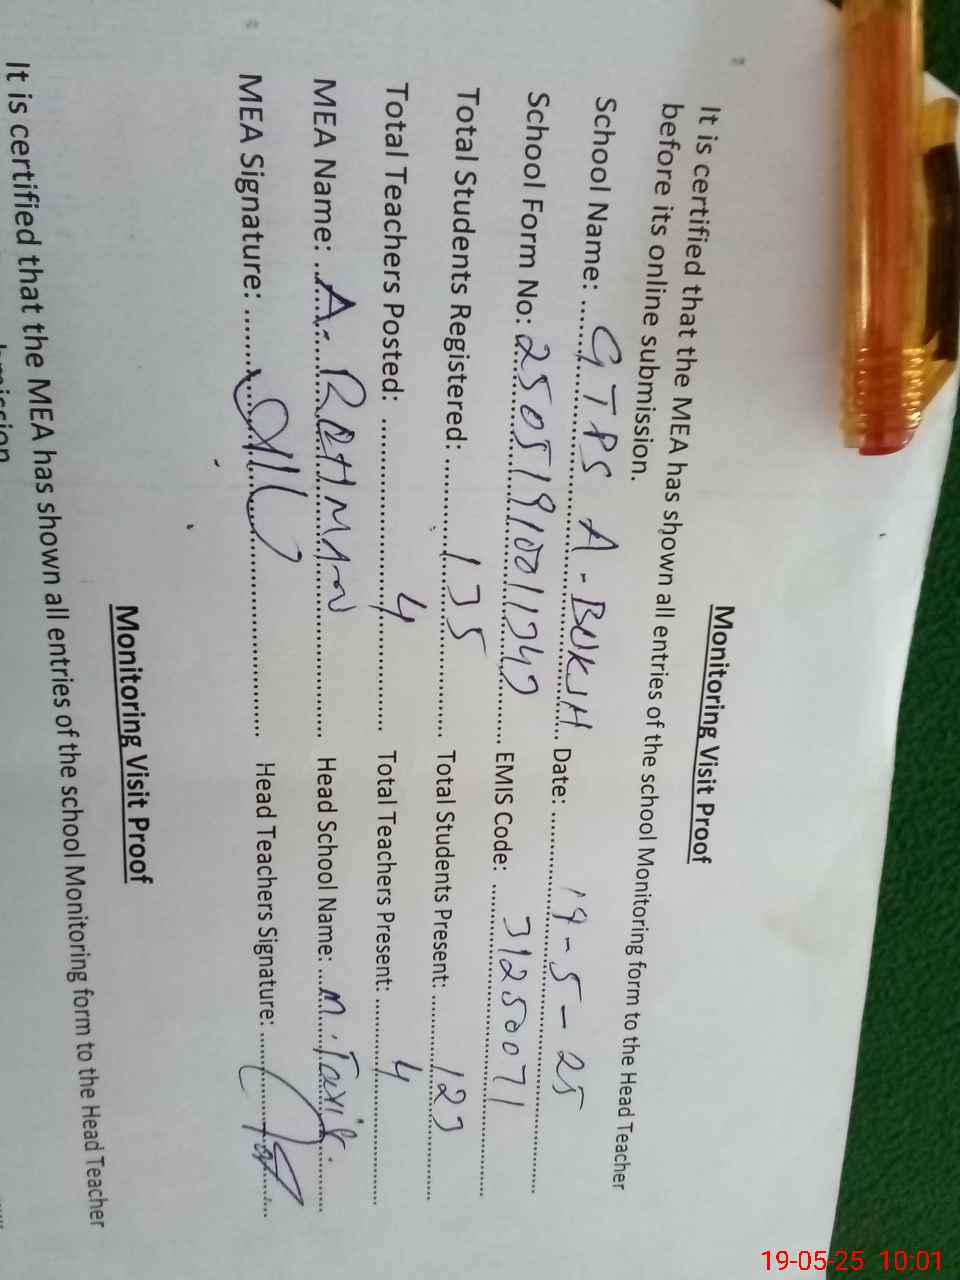 Monitoring Visit Proof
It is certified that the MEA has shown all entries of the school Monitoring form to the Head Teacher
before its online submission.
School Name: ........ GTPS A-BUKSH ........ Date: ........ 19-5-25 ........
School Form No: 2505191001349 ........ EMIS Code: ........ 31250071 ........
Total Students Registered: ........ 135 ........ Total Students Present: ........ 123 ........
Total Teachers Posted: ........ 4 ........ Total Teachers Present: ........ 4 ........
MEA Name: ... A. RAHMAN ........ Head School Name: ... M. ........
MEA Signature: ........ Head Teachers Signature: ........
Monitoring Visit Proof
It is certified that the MEA has shown all entries of the school Monitoring form to the Head Teacher
19-05-25 10:01